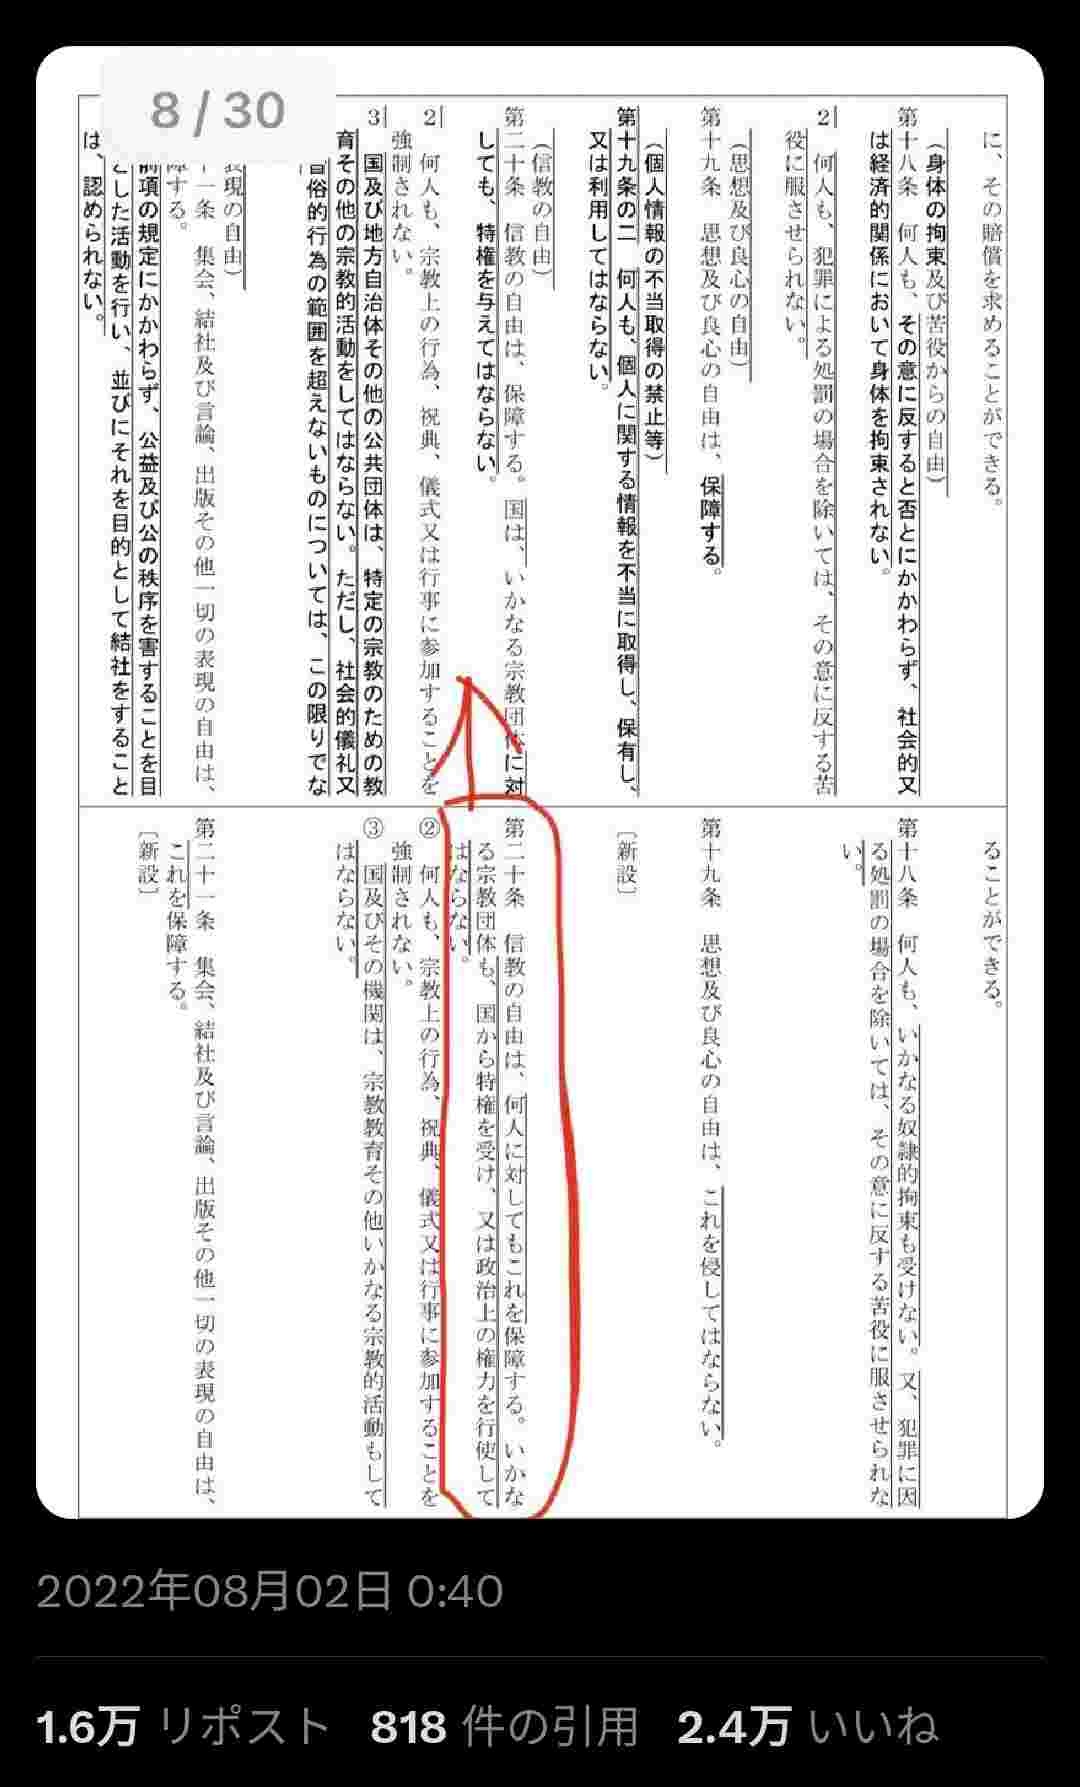 8 / 30
に、その賠償を求めることができる。
（身体の拘束及び苦役からの自由）
第十八条　何人も、その意に反すると否とにかかわらず、社会的又
は経済的関係において身体を拘束されない。
2　何人も、犯罪による処罰の場合を除いては、その意に反する苦
役に服させられない。
（思想及び良心の自由）
第十九条　思想及び良心の自由は、保障する。
（個人情報の不当取得の禁止等）
第十九条の二　何人も、個人に関する情報を不当に取得し、保有し、
又は利用してはならない。
（信教の自由）
第二十条　信教の自由は、保障する。国は、いかなる宗教団体に対
しても、特権を与えてはならない。
2　何人も、宗教上の行為、祝典、儀式又は行事に参加することを
強制されない。
3　国及び地方自治体その他の公共団体は、特定の宗教のための教
育その他の宗教的活動をしてはならない。ただし、社会的儀礼又
習俗的行為の範囲を超えないものについては、この限りでな
表現の自由）
一条　集会、結社及び言論、出版その他一切の表現の自由は、
障する。
前項の規定にかかわらず、公益及び公の秩序を害することを目
とした活動を行い、並びにそれを目的として結社をすること
は、認められない。
ることができる。
第十八条　何人も、いかなる奴隷的拘束も受けない。又、犯罪に因
る処罰の場合を除いては、その意に反する苦役に服させられな
い。
第十九条　思想及び良心の自由は、これを侵してはならない。
〔新設〕
第二十条　信教の自由は、何人に対してもこれを保障する。いかな
る宗教団体も、国から特権を受け、又は政治上の権力を行使して
はならない。
②　何人も、宗教上の行為、祝典、儀式又は行事に参加することを
強制されない。
③　国及びその機関は、宗教教育その他いかなる宗教的活動もして
はならない。
第二十一条　集会、結社及び言論、出版その他一切の表現の自由は、
これを保障する。
〔新設〕
2022年08月02日 0:40
1.6万 リポスト　818 件の引用　2.4万 いいね